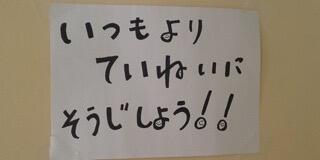 いつもより
ていねいに
そうじしよう!!